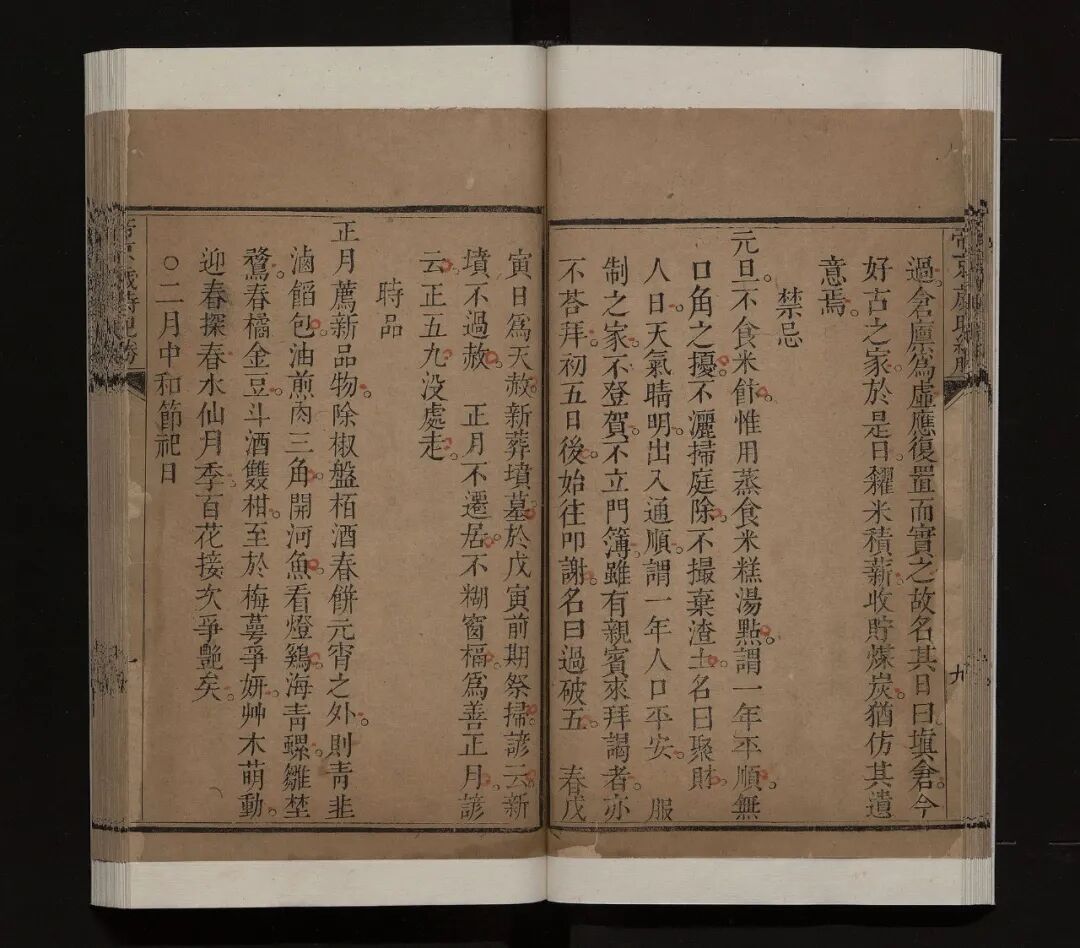 帝京歲時紀勝
過倉廩為虛應復置而實之故名其日曰塡倉。今
好古之家於是日糴米積薪收貯煤炭猶仿其遺
意焉。
禁忌
元旦。不食米飰。惟用蒸食米糕湯點。謂一年平順。無
口角之擾。不灑掃庭除。不撮棄渣土。名曰聚財。
人日。天氣晴明。出入通順。謂一年人口平安。　服
制之家。不登賀。不立門簿。雖有親賓來拜謁者。亦
不荅拜。初五日後。始往叩謝。名曰過破五。　春戊
九
寅日為天赦。新葬墳墓。於戊寅前期祭掃。諺云。新
墳不過赦。　正月不遷居。不糊窗槅。為善正月。諺
云。正五九。没處走。
時品
正月薦新品物。除椒盤栢酒春餅元宵之外。則青韭
滷餡包。油煎肉三角。開河魚。看燈鷄。海青螺。雛野
鶩。春橘金豆。斗酒雙柑。至於梅萼爭妍。艸木萌動。
迎春探春。水仙月季。百花接次爭艷矣。
○二月中和節祀日
帝京歲時紀勝